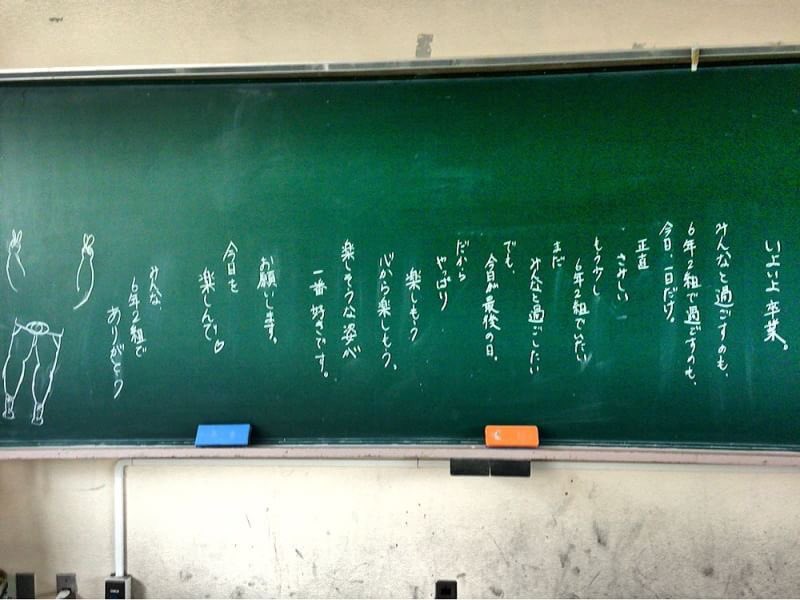 いよいよ卒業。
みんなと過ごすのも、
6年2組で過ごすのも、
今日、一日だけ。
正直
さみしい
もう少し
6年2組でいたい
まだ
みんなと過ごしたい
でも、
今日が最後の日。
だから
やっぱり
楽しもう
心から楽しもう。
楽しそうな姿が
一番好きです。
お願いします。
今日を
楽しんで♡
みんな、
6年2組で
ありがとう